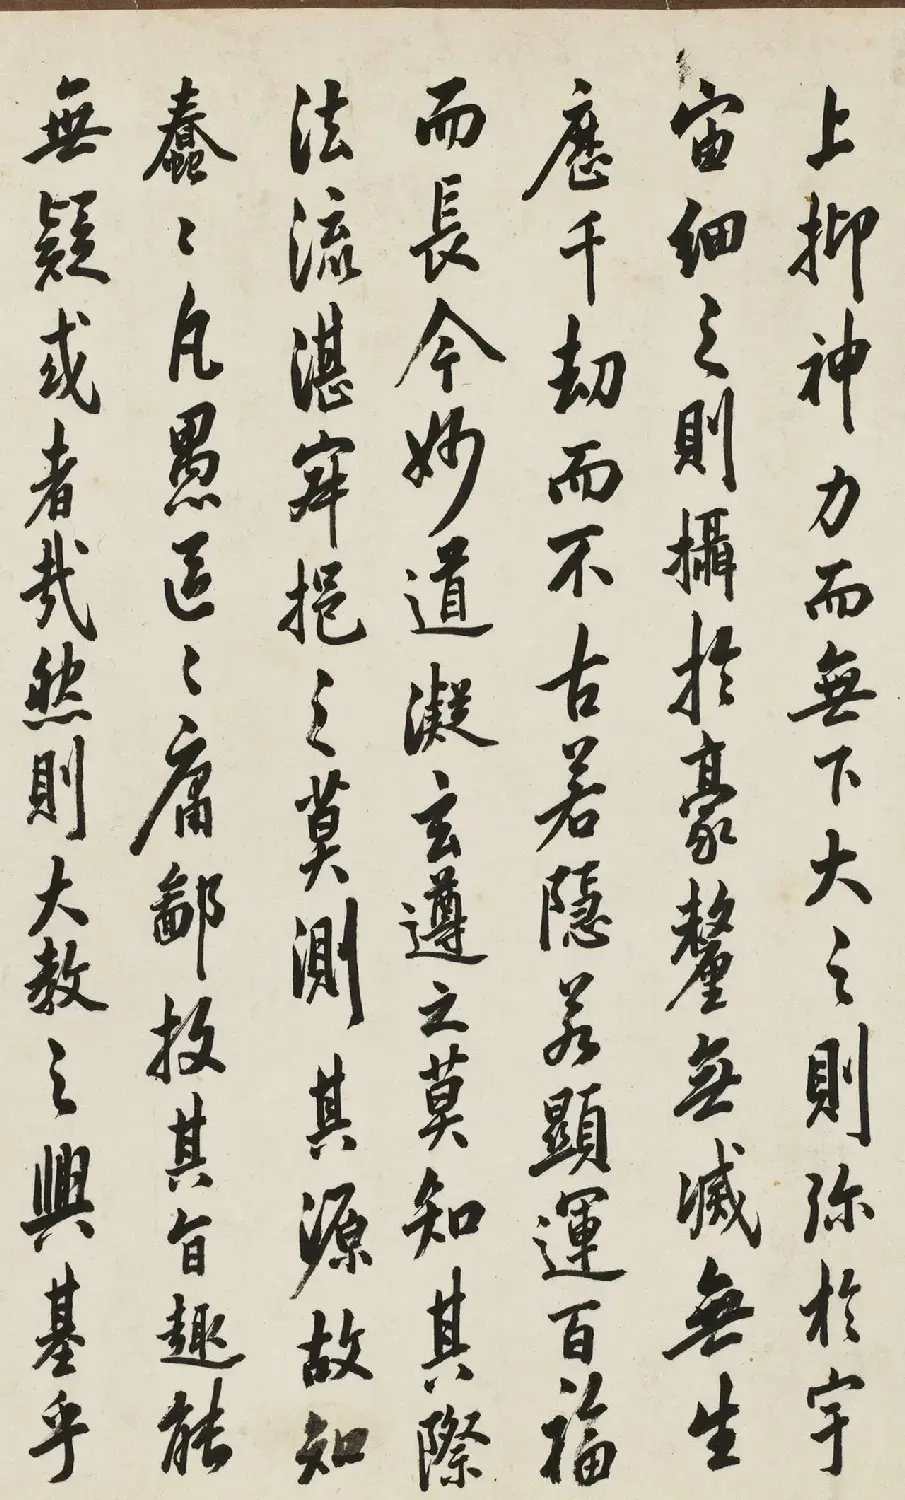 上抑神力而無下大之則弥於宇
宙細之則攝於豪釐無滅無生
歷千劫而不古若隱若顯運百福
而長今妙道凝玄遵之莫知其際
法流湛寂挹之莫測其源故知
蠢〻凡愚區〻庸鄙投其旨趣能
無疑或者哉然則大教之興基乎